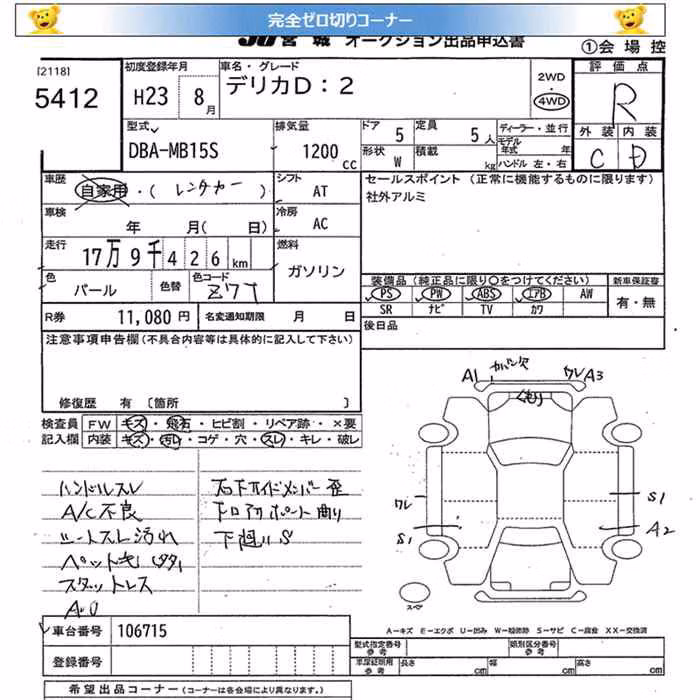 完全ゼロ切りコーナー
JU宮城 オークション出品申込書
①会場控
[2118]
5412
初度登録年月
H23 8月
車名・グレード
デリカD:2
2WD
・
4WD
評価点
R
外装 内装
C D
型式
DBA-MB15S
排気量
1200 cc
ドア 5
定員 5人
形状 W
積載 kg
ディーラー・並行
モデル年式 年
ハンドル 左・右
車歴
自家用・(レンタカー)
シフト
AT
セールスポイント(正常に機能するものに限ります)
社外アルミ
車検
年 月(日)
冷房
AC
走行
17万9千426km
燃料
ガソリン
色
パール
色替
色コード
Z7T
装備品(純正品に限り○をつけてください)
PS PW ABS エアB AW
SR ナビ TV カワ
新車保証書
有・無
R券 11,080円
名変通知期限 月 日
後日品
注意事項申告欄(不具合内容等は具体的に記入して下さい)
修復歴 有〔箇所 〕
検査員記入欄
FW キズ・飛石・ヒビ割・リペア跡・×要
内装 キズ・汚レ・コゲ・穴・スレ・キレ・破レ
ハンドルスレ
A/C不良
シートスレ汚れ
ペット毛
スタットレス
右下サイドメンバー歪
下回りS
A1 カバン欠 ワレ A3
くもり
ワレ
S1
S1
A2
スペア
A-キズ E-エクボ U-凹み W-補修跡 S-サビ C-腐食 XX-交換済
車台番号 106715
登録番号
型式指定番号 参考
類別区分番号 参考
車両証明用 参考
長さ cm 幅 cm 高さ cm
希望出品コーナー(コーナーは各会場により異なります。)